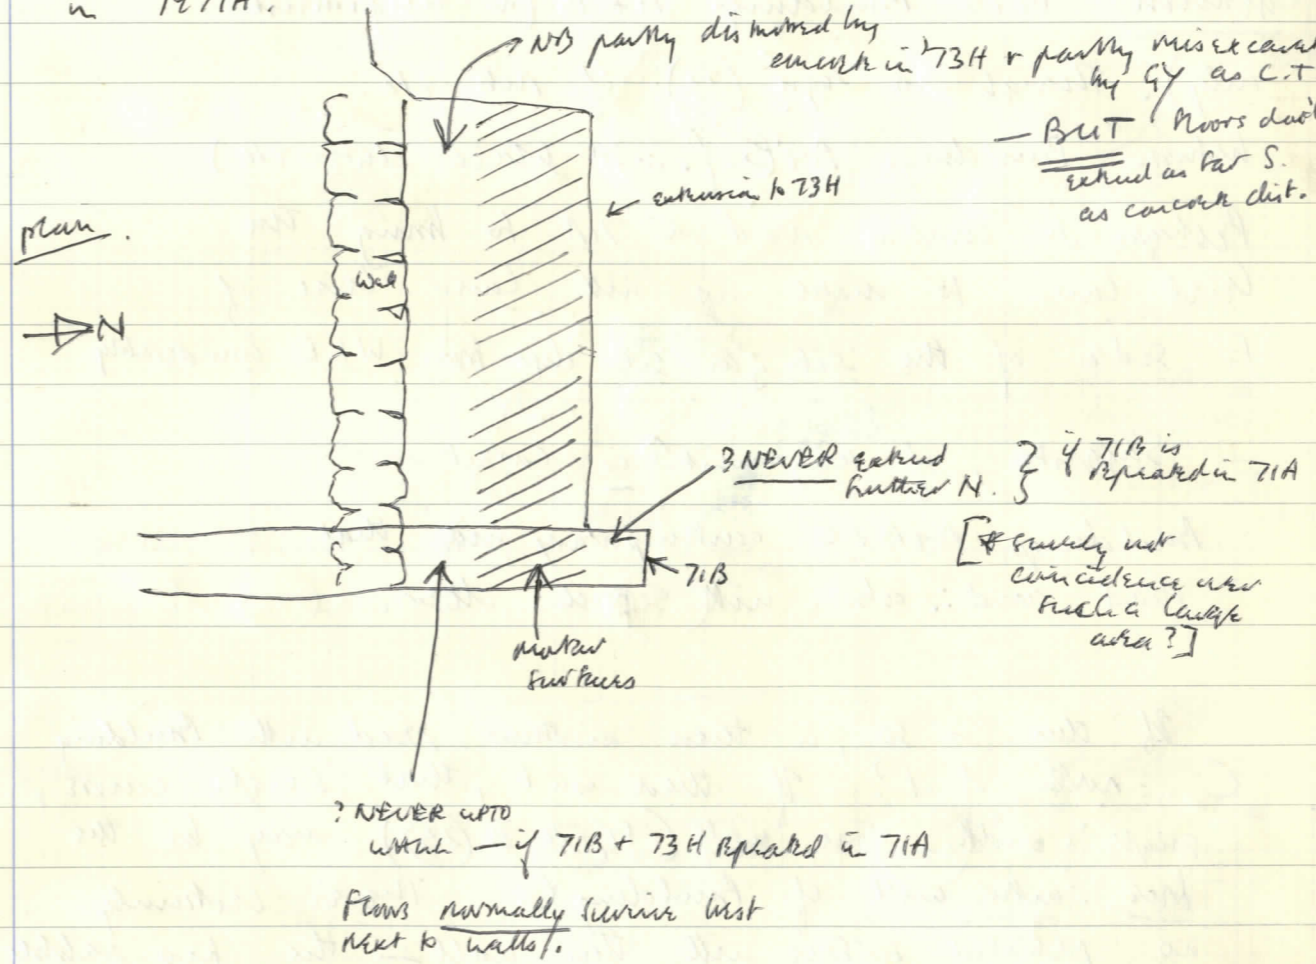 in 71A.
NB partly disturbed by
concrete in 73H + partly misexcavat
by GY as C.T
— BUT floors don't
extend as far S.
as concrete dist.
extension to 73H
plan.
Wall
N
? NEVER extend
further N. } if 71B is
repeated in 71A
[* surely not
coincidence over
such a large
area?]
71B
mortar
surfaces
? NEVER UPTO
WALL — if 71B + 73H repeated in 71A
Floors normally survive best
next to walls!